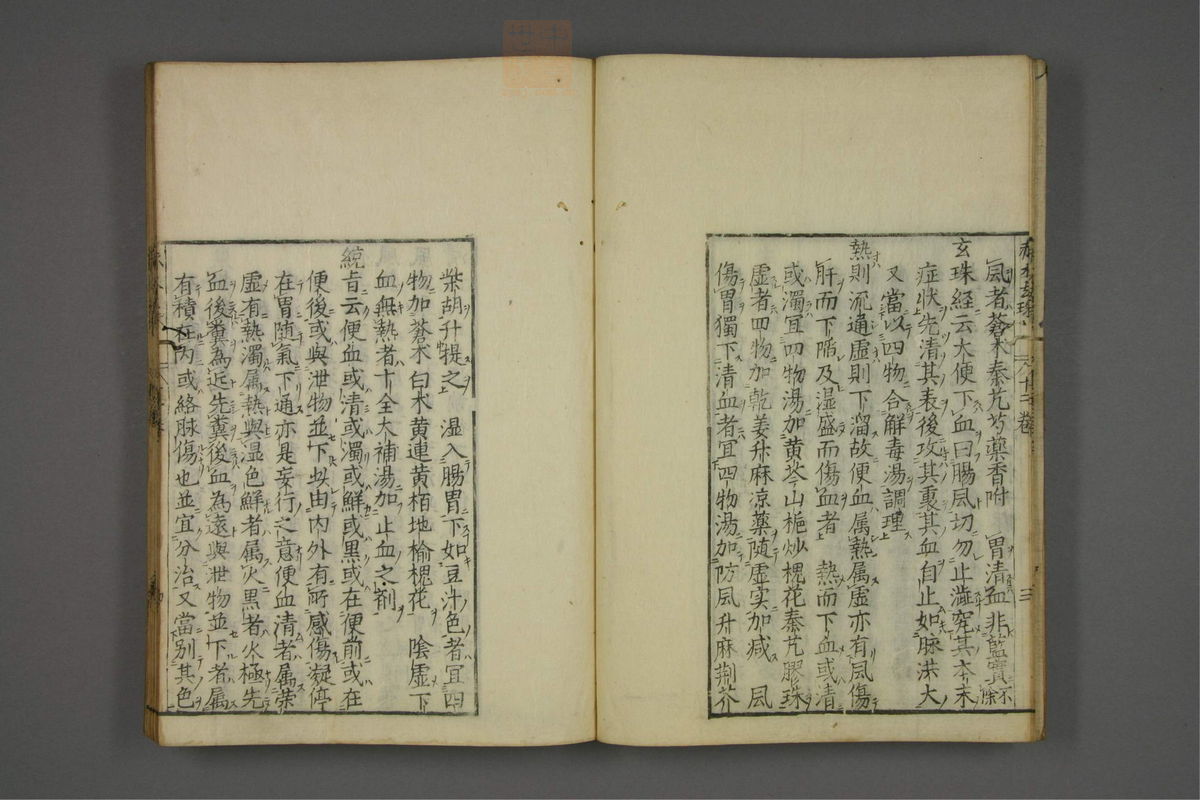 風者蒼朮秦艽芍藥香附　胃清血非藍實不除
玄珠経云大便下血曰腸風切勿止澁究其本末
症状先清其表後攻其裏其血自止如脉洪大
又當以四物合解毒湯調理
熱則流通虚則下溜故便血属熱属虚亦有風傷
肝而下陥及湿盛而傷血者　熱而下血或清
或濁宜四物湯加黄芩山梔炒槐花秦艽膠珠
虚者四物加乾姜升麻凉薬随虚实加减　風
傷胃獨下清血者宜四物湯加防風升麻荆芥
柴胡升提之　湿入腸胃下如豆汁色者宜四
物加蒼朮白朮黄連黄栢地榆槐花　陰虚下
血無熱者十全大補湯加止血之剤
統旨云便血或清或濁或鮮或黒或在便前或在
便後或與泄物並下此由内外有所感傷凝停
在胃随氣下通亦是妄行之意便血清者属荣
虚有熱濁属熱與湿色鮮者属火黒者火極先
血後糞為近先糞後血為遠與泄物並下者属
有積在内或絡脉傷也並宜分治又當別其色